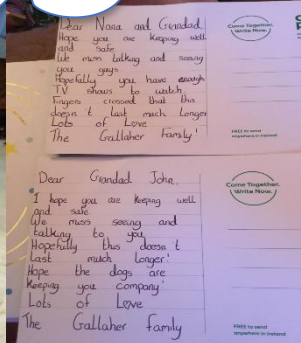 Dear Nana and Grandad
Hope you are keeping well
and safe
We miss talking and seeing
you guys
Hopefully you have enough
TV shows to watch
Fingers crossed that this
doesn't last much longer
Lots of Love
The Gallaher Family!
Come Together.
Write Now.
FREE to send
anywhere in Ireland
Dear Grandad John,
I hope you are keeping well
and safe
We miss seeing and
talking to you
Hopefully this doesn't
last much longer!
Hope the dogs are
keeping you company!
Lots of Love
The Gallaher Family
Come Together.
Write Now.
FREE to send
anywhere in Ireland